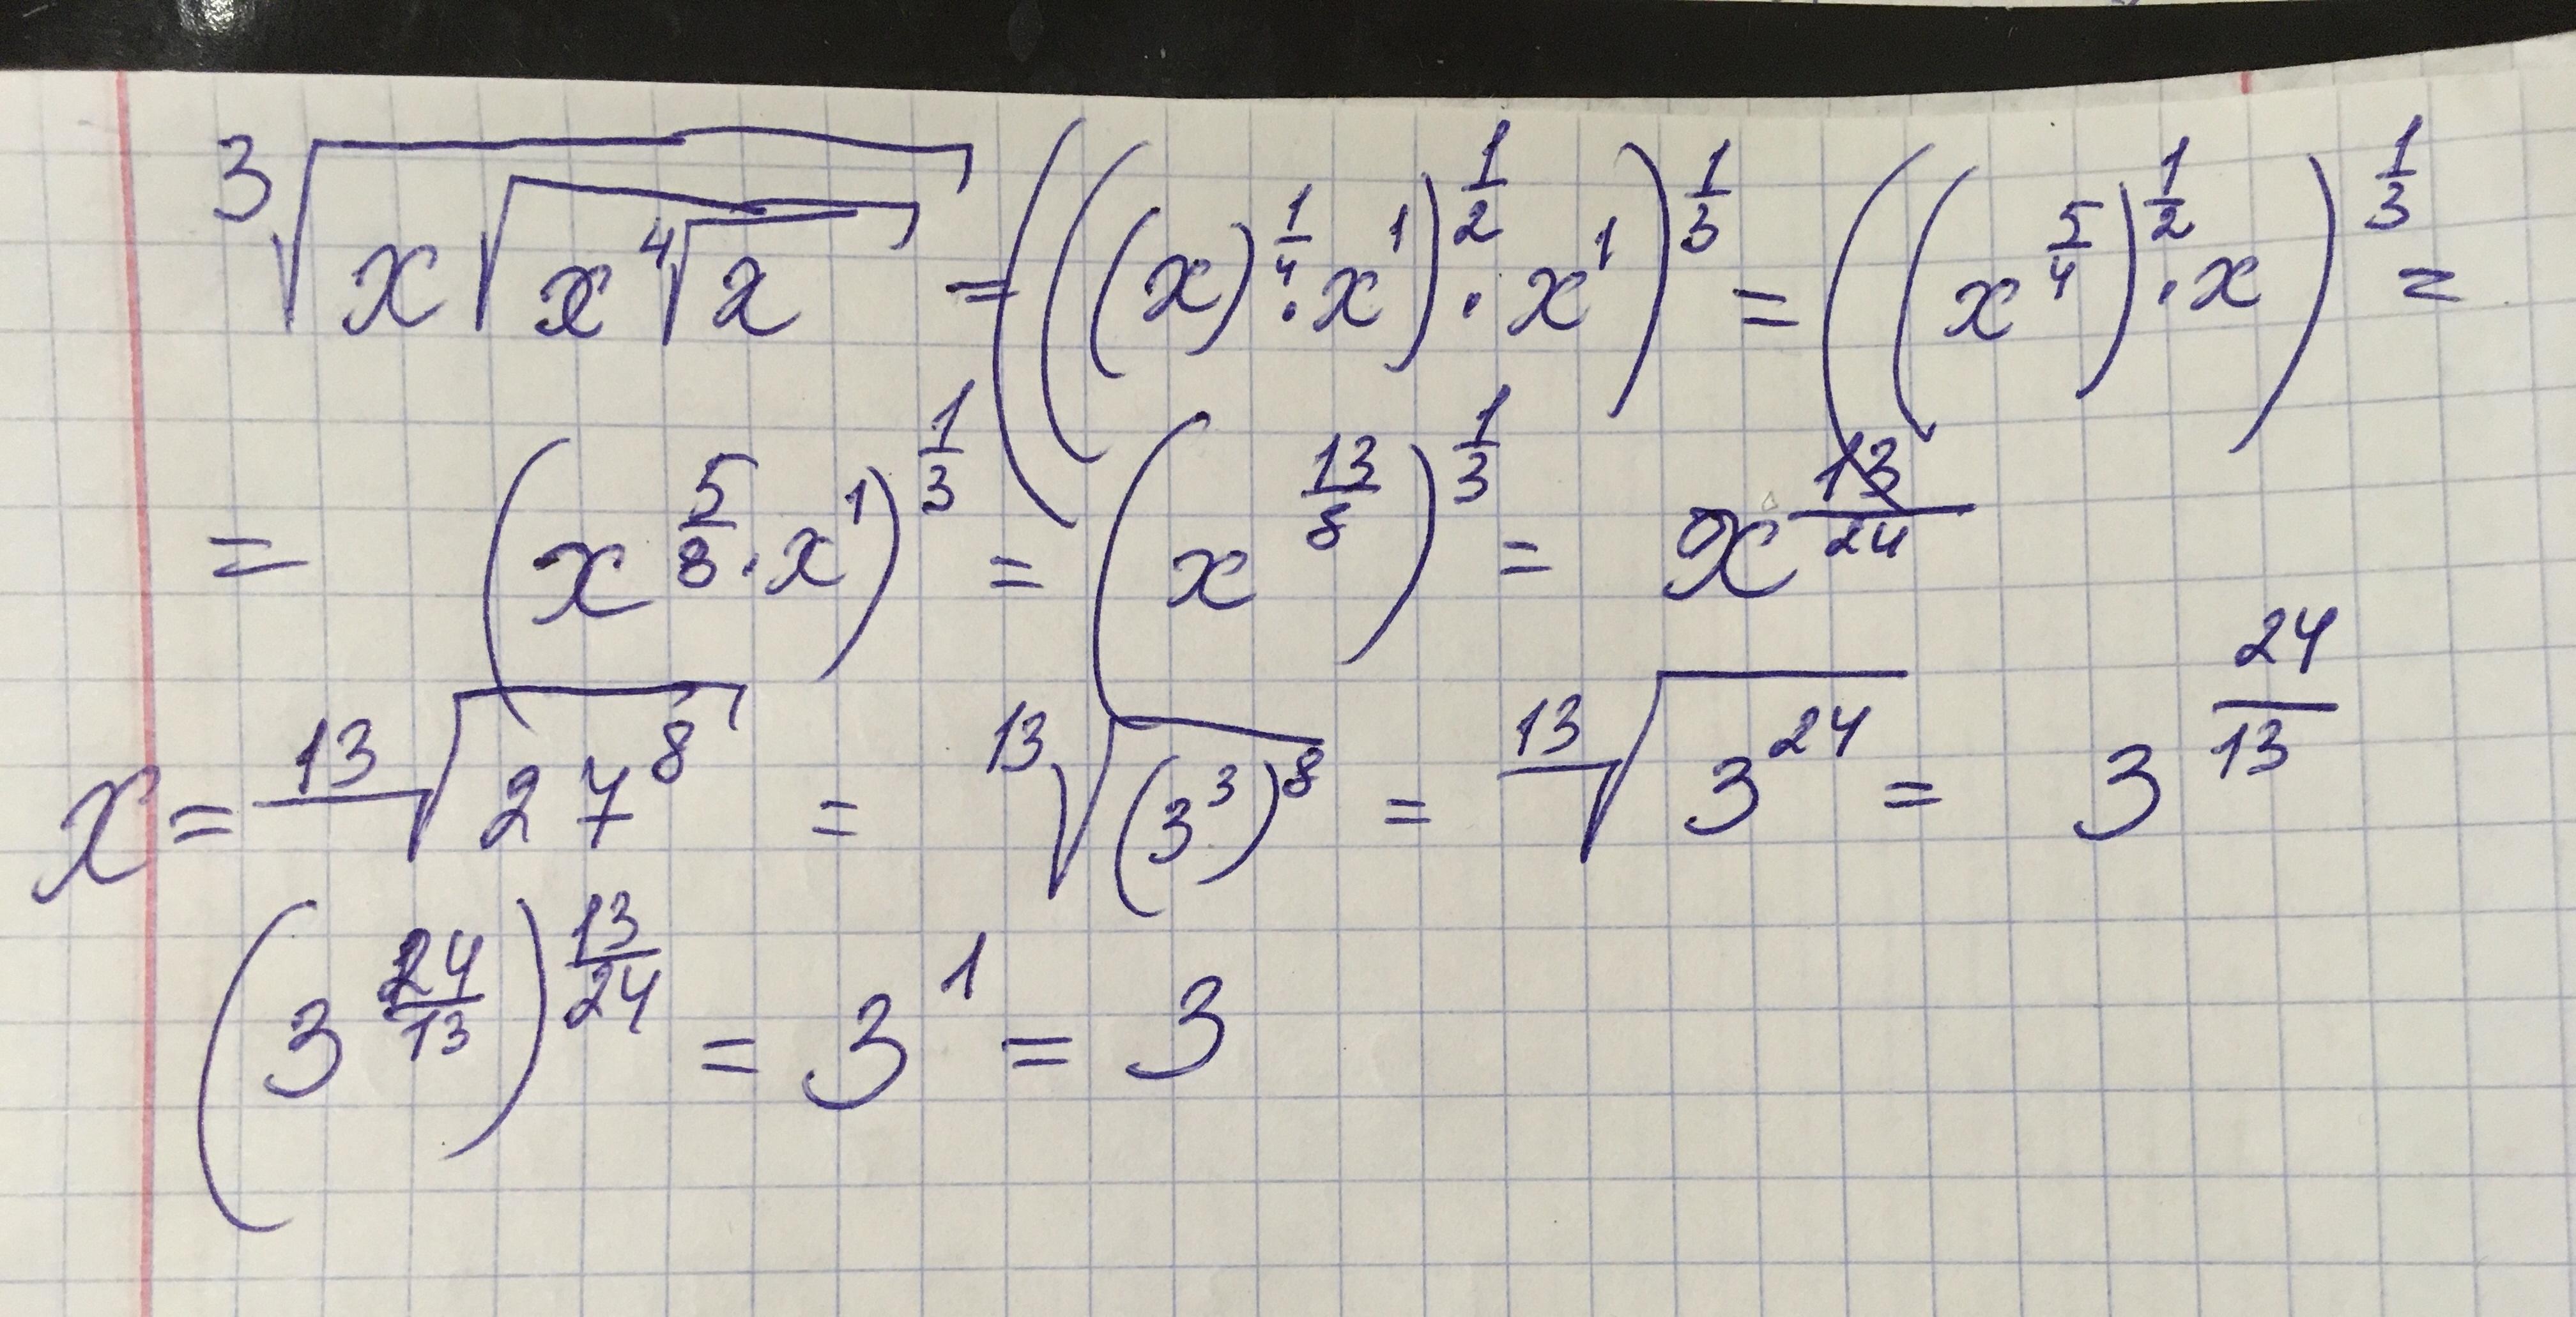 ∛(x√(x∜x)) = (((x)^(1/4) · x^1)^(1/2) · x^1)^(1/3) = ((x^(5/4))^(1/2) · x)^(1/3) =
= (x^(5/8) · x^1)^(1/3) = (x^(13/8))^(1/3) = x^(13/24)
x = ¹³√(27^8) = ¹³√((3^3)^8) = ¹³√(3^24) = 3^(24/13)
(3^(24/13))^(13/24) = 3^1 = 3